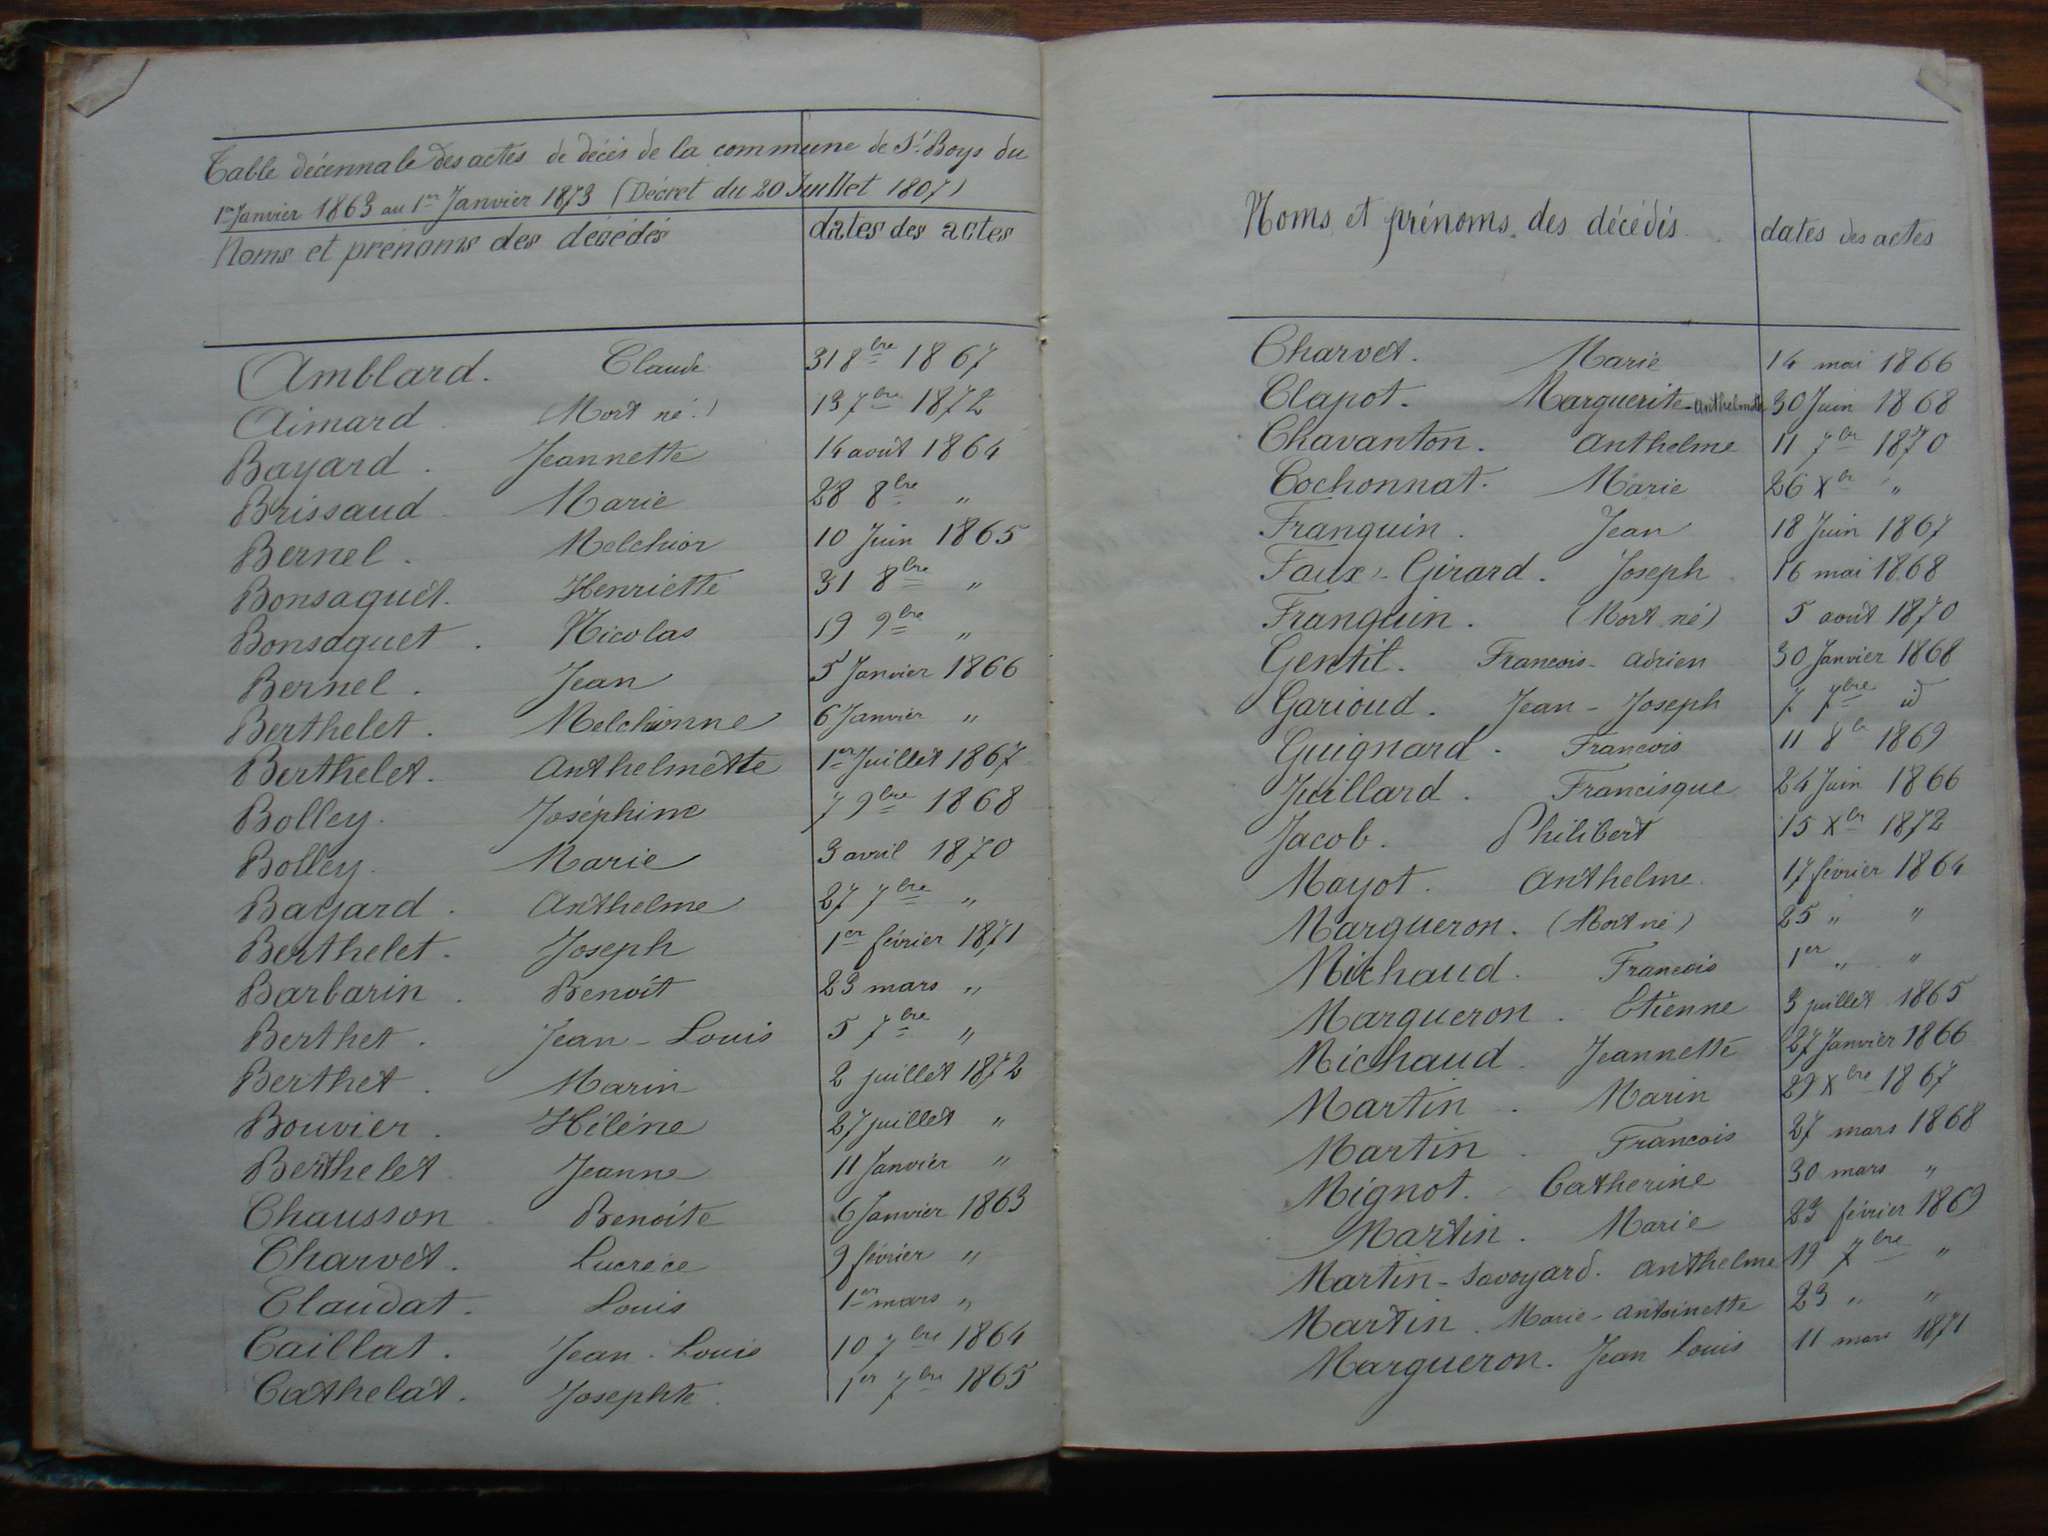 Table décennale des actes de décès de la commune de St Boys du
1er Janvier 1863 au 1er Janvier 1873 (Décret du 20 Juillet 1807)
Noms et prenoms des décédés dates des actes
Amblard. Claude 31 8bre 1867
Aimard (Mort né.) 13 7bre 1872
Bayard. Jeannette 14 août 1864
Brissaud Marie 28 8bre "
Bernel. Melchior 10 Juin 1865
Bonsaquet. Henriette 31 8bre "
Bonsaquet. Nicolas 19 9bre "
Bernel. Jean 5 Janvier 1866
Berthelet. Melchionne 6 Janvier "
Berthelet. Anthelmette 1er Juillet 1867
Bolley. Joséphine 7 9bre 1868
Bolley. Marie 3 avril 1870
Bayard. Anthelme 27 7bre "
Berthelet. Joseph 1er février 1871
Barbarin. Benoit 23 mars "
Berthet. Jean-Louis 5 7bre "
Berthet. Marin 2 juillet 1872
Bouvier. Hélène 27 juillet "
Berthelet Jeanne 11 Janvier "
Chausson Benoite 6 Janvier 1863
Charvet. Lucrèce 9 février "
Claudat. Louis 1er mars "
Caillat. Jean-Louis 10 7bre 1864
Cathelat. Josephte. 1er 7bre 1865
Noms et prénoms des décédés dates des actes
Charvet. Marie 14 mai 1866
Clapot. Marguerite-Anthelmette 30 Juin 1868
Chavanton. Anthelme 11 7br 1870
Cochonnat. Marie 26 Xbr "
Franquin. Jean 18 Juin 1867
Faux-Girard. Joseph 16 mai 1868
Franquin. (Mort né) 5 août 1870
Gentil. Francois-Adrien 30 Janvier 1868
Garioud. Jean-Joseph 7 7bre id
Guignard. Francois 11 8br 1869
Juillard. Francisque 24 Juin 1866
Jacob. Philibert 15 Xbr 1872
Mayot. Anthelme. 17 février 1864
Margueron. (Mort né) 25 " "
Michaud. Francois 1er " "
Margueron. Etienne 3 juillet 1865
Michaud. Jeannette 27 Janvier 1866
Martin. Marin 29 Xbre 1867
Martin. Francois 27 mars 1868
Mignot. Catherine 30 mars "
Martin. Marie 23 février 1869
Martin-Savoyard. Anthelme 19 7bre "
Martin. Marie-Antoinette 23 " "
Margueron. Jean Louis 11 mars 1871